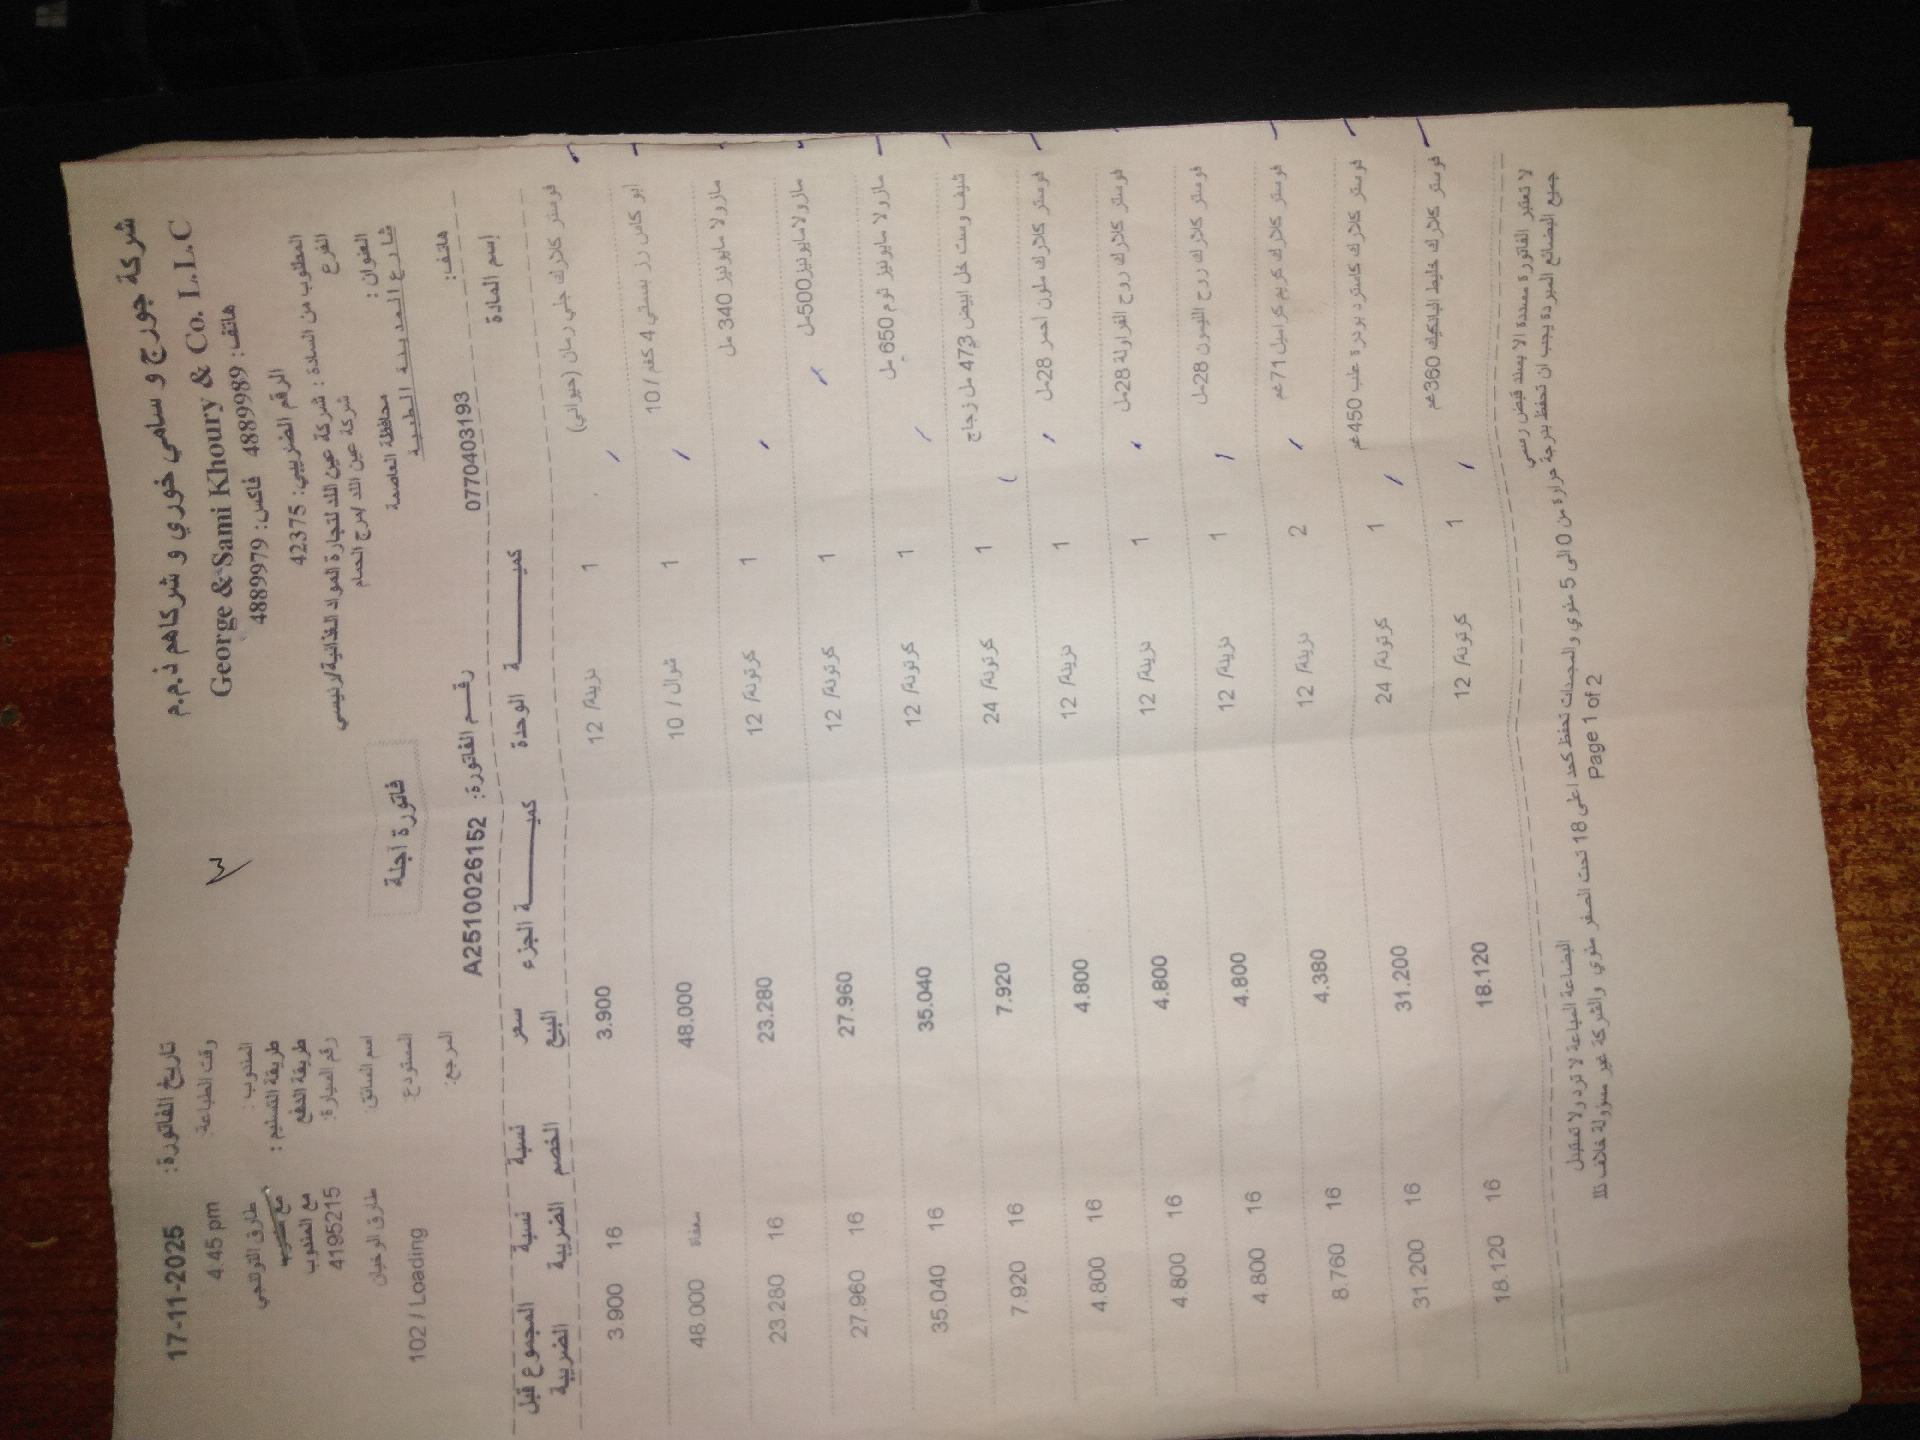 شركة جورج و سامي خوري و شركاهم ذ.م.م
George & Sami Khoury & Co. L.L.C
هاتف: 4889989 فاكس: 4889979
الرقم الضريبي: 42375
المطلوب من السادة : شركة عين اللد لتجارة المواد الغذائية/رئيسي
الفرع شركة عين اللد /مرج الحمام
العنوان : محافظة العاصمة
شارع المدينة الطبية
هاتف: 0770403193
فاتورة آجلة
رقم الفاتورة: A2510026152
تاريخ الفاتورة: 17-11-2025
وقت الطباعة: 4:45 pm
المندوب : طارق
طريقة التسليم :
طريقة الدفع مع المندوب
رقم السيارة: 4195215
اسم السائق: طارق
المستودع: 102 / Loading
المرجع:
إسم المادة كميــــة الوحدة كميــــة الجزء سعر البيع نسبة الخصم نسبة الضريبة المجموع قبل الضريبة
فوستر كلارك جلي رمان (حيواني) 1 دزينة/ 12 3.900 16 3.900
ابو كاس رز بسمتي 4 كغم /10 1 شوال / 10 48.000 معفاة 48.000
مازولا مايونيز 340 مل 1 كرتونة/ 12 23.280 16 23.280
مازولا مايونيز500مل 1 كرتونة/ 12 27.960 16 27.960
مازولا مايونيز ثوم 650 مل 1 كرتونة/ 12 35.040 16 35.040
شيف وست خل ابيض 473 مل زجاج 1 كرتونة/ 24 7.920 16 7.920
فوستر كلارك ملون احمر 28مل 1 دزينة/ 12 4.800 16 4.800
فوستر كلارك روح الفراولة 28مل 1 دزينة/ 12 4.800 16 4.800
فوستر كلارك روح الليمون 28مل 1 دزينة/ 12 4.800 16 4.800
فوستر كلارك كريم كراميل 71غم 2 دزينة/ 12 4.380 16 8.760
فوستر كلارك كاسترد بودرة علب 450غم 1 كرتونة/ 24 31.200 16 31.200
فوستر كلارك خليط البانكيك 360غم 1 كرتونة/ 12 18.120 16 18.120
لا تعتبر الفاتورة مسددة الا بسند قبض رسمي
البضاعة المباعة لا ترد ولا تستبدل
جميع البضائع المبردة يجب ان تحفظ بدرجة حرارة من 0 الى 5 مئوي والمجمدات تحفظ كحد اعلى 18 تحت الصفر مئوي والشركة غير مسؤولة خلاف ذلك
Page 1 of 2